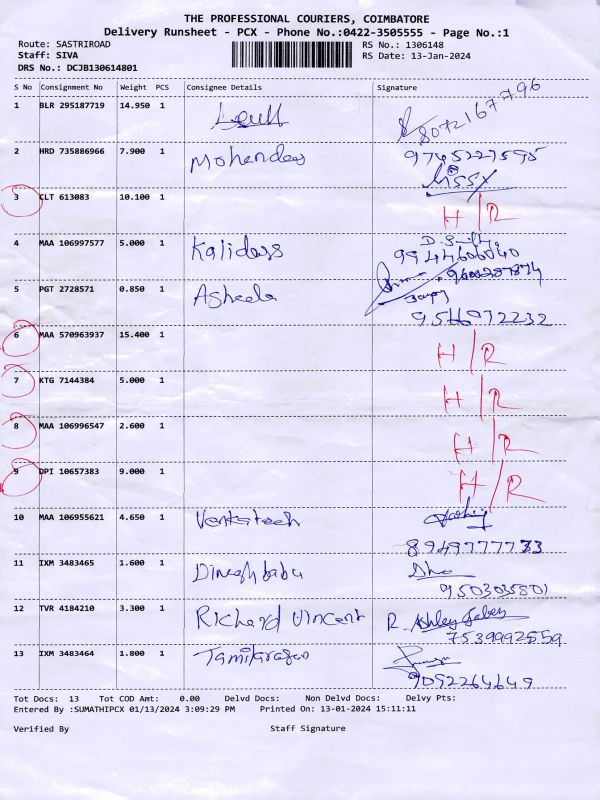 THE PROFESSIONAL COURIERS, COIMBATORE
Delivery Runsheet - PCX - Phone No.:0422-3505555 - Page No.:1
Route: SASTRIROAD RS No.: 1306148
Staff: SIVA RS Date: 13-Jan-2024
DRS No.: DCJB130614801
S No Consignment No Weight PCS Consignee Details Signature
1 BLR 295187719 14.950 1 8072167796
2 HRD 735886966 7.900 1 Mohandas 9745227595
3 CLT 613083 10.100 1 H/R
4 MAA 106997577 5.000 1 Kalidass 9944606040
5 PGT 2728571 0.850 1
6 MAA 570963937 15.400 1 H/R
7 KTG 7144384 5.000 1 H/R
8 MAA 106996547 2.600 1 H/R
9 DPI 10657383 9.000 1 H/R
10 MAA 106955621 4.650 1 Venkatesh
8949777733
11 IXM 3483465 1.600 1 Dineshbabu
9503035801
12 TVR 4184210 3.300 1 Richard Vincent
7539992559
13 IXM 3483464 1.800 1 Tamilarasan
9092264649
Tot Docs: 13 Tot COD Amt: 0.00 Delvd Docs: Non Delvd Docs: Delvy Pts:
Entered By :SUMATHIPCX 01/13/2024 3:09:29 PM Printed On: 13-01-2024 15:11:11
Verified By Staff Signature